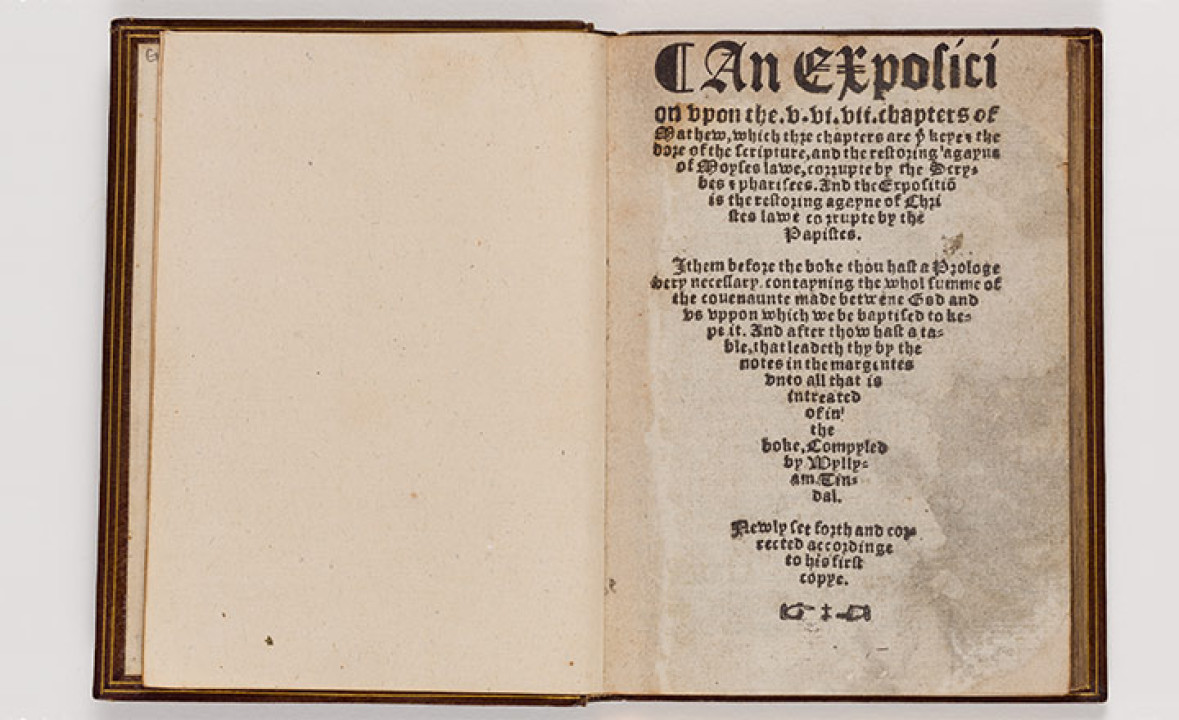 ¶ An Exposici
on vpon the.v.vi.vii.chapters of
Mathew, which thre chapters are þͤ keye ⁊ the
dore of the scripture, and the restoring agayne
of Moyses lawe, corrupte by the Scry-
bes ⁊ pharisees. And the Expositiō
is the restoring agayne of Chri
stes lawe corrupte by the
Papistes.
Ithem before the boke thou hast a Prologe
very necessary. contayning the whol summe of
the couenaunte made betwene God and
vs vppon which we be baptised to ke-
pe it. And after thow hast a ta-
ble, that leadeth thy by the
notes in the margentes
vnto all that is
intreated
of in
the
boke, Compyled
by Wylly-
am Tin-
dal.
Newly set forth and cor-
rected accordinge
to his first
coppe.